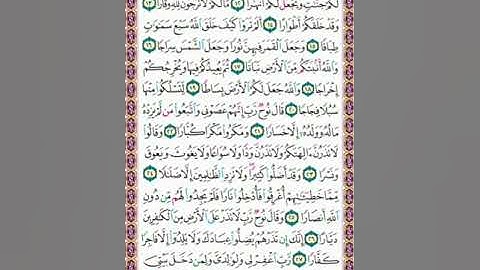 لَكُمْ جَنَّٰتٍ وَيَجْعَل لَّكُمْ أَنْهَٰرًا ١٢ مَّا لَكُمْ لَا تَرْجُونَ لِلَّهِ وَقَارًا ١٣
وَقَدْ خَلَقَكُمْ أَطْوَارًا ١٤ أَلَمْ تَرَوْا۟ كَيْفَ خَلَقَ ٱللَّهُ سَبْعَ سَمَٰوَٰتٍ
طِبَاقًا ١٥ وَجَعَلَ ٱلْقَمَرَ فِيهِنَّ نُورًا وَجَعَلَ ٱلشَّمْسَ سِرَاجًا ١٦
وَٱللَّهُ أَنۢبَتَكُم مِّنَ ٱلْأَرْضِ نَبَاتًا ١٧ ثُمَّ يُعِيدُكُمْ فِيهَا وَيُخْرِجُكُمْ
إِخْرَاجًا ١٨ وَٱللَّهُ جَعَلَ لَكُمُ ٱلْأَرْضَ بِسَاطًا ١٩ لِّتَسْلُكُوا۟ مِنْهَا
سُبُلًا فِجَاجًا ٢٠ قَالَ نُوحٌ رَّبِّ إِنَّهُمْ عَصَوْنِى وَٱتَّبَعُوا۟ مَن لَّمْ يَزِدْهُ
مَالُهُۥ وَوَلَدُهُۥٓ إِلَّا خَسَارًا ٢١ وَمَكَرُوا۟ مَكْرًا كُبَّارًا ٢٢ وَقَالُوا۟
لَا تَذَرُنَّ ءَالِهَتَكُمْ وَلَا تَذَرُنَّ وَدًّا وَلَا سُوَاعًا وَلَا يَغُوثَ وَيَعُوقَ
وَنَسْرًا ٢٣ وَقَدْ أَضَلُّوا۟ كَثِيرًا وَلَا تَزِدِ ٱلظَّٰلِمِينَ إِلَّا ضَلَٰلًا ٢٤
مِّمَّا خَطِيٓـَٰٔتِهِمْ أُغْرِقُوا۟ فَأُدْخِلُوا۟ نَارًا فَلَمْ يَجِدُوا۟ لَهُم مِّن دُونِ
ٱللَّهِ أَنصَارًا ٢٥ وَقَالَ نُوحٌ رَّبِّ لَا تَذَرْ عَلَى ٱلْأَرْضِ مِنَ ٱلْكَٰفِرِينَ
دَيَّارًا ٢٦ إِنَّكَ إِن تَذَرْهُمْ يُضِلُّوا۟ عِبَادَكَ وَلَا يَلِدُوٓا۟ إِلَّا فَاجِرًا
كَفَّارًا ٢٧ رَّبِّ ٱغْفِرْ لِى وَلِوَٰلِدَىَّ وَلِمَن دَخَلَ بَيْتِىَ